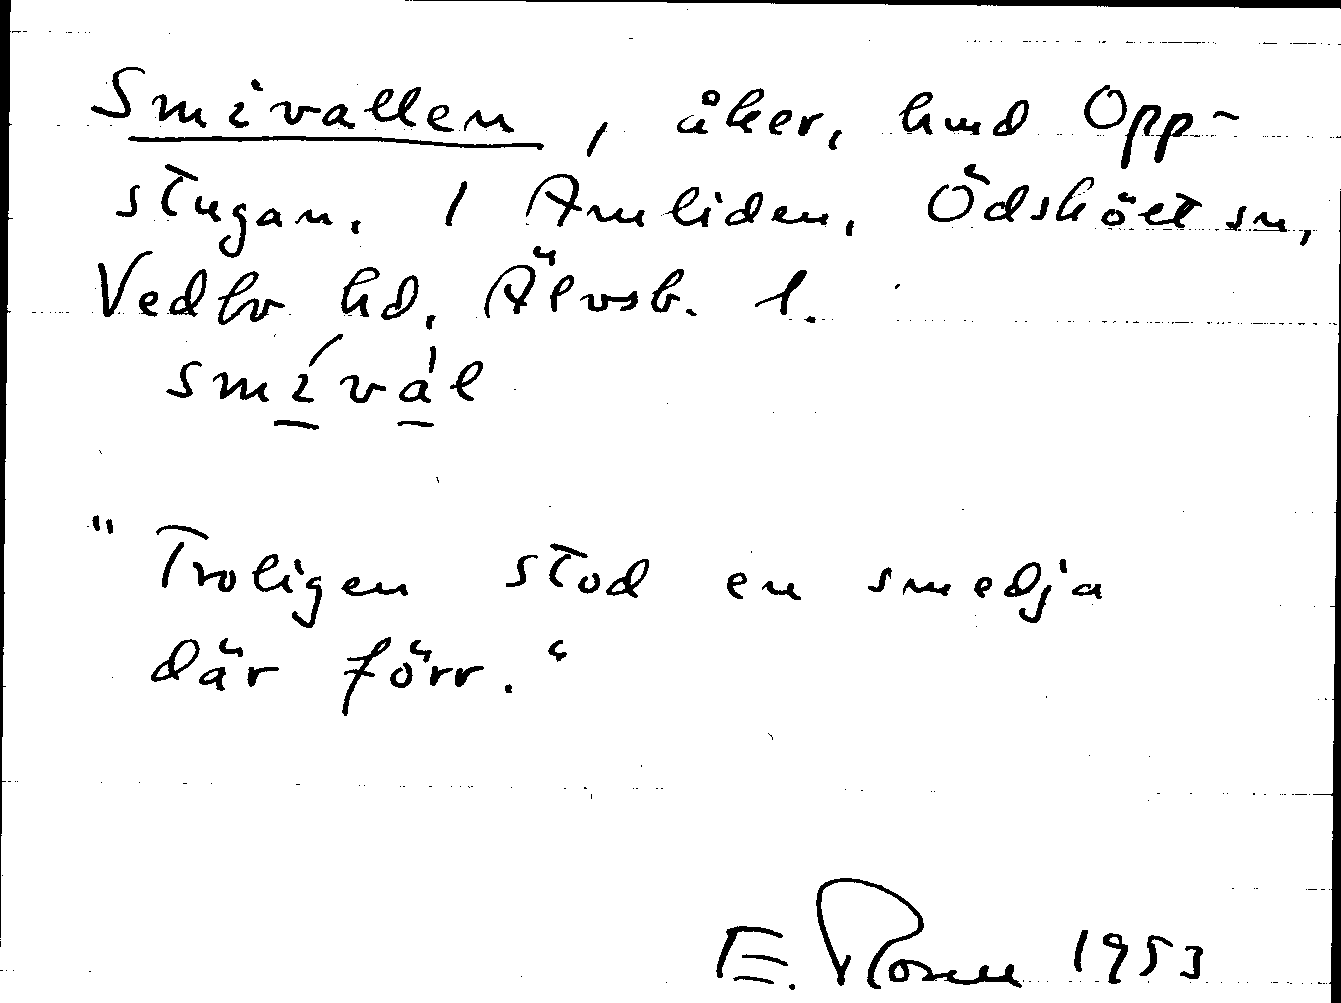 Smivallen, åker, hmd Opp-
stugan, 1 Amliden, Ödskölt sn,
Vedbo hd, Älvsb. l.
smívál
"Troligen stod en smedja
där förr."
E. 1953